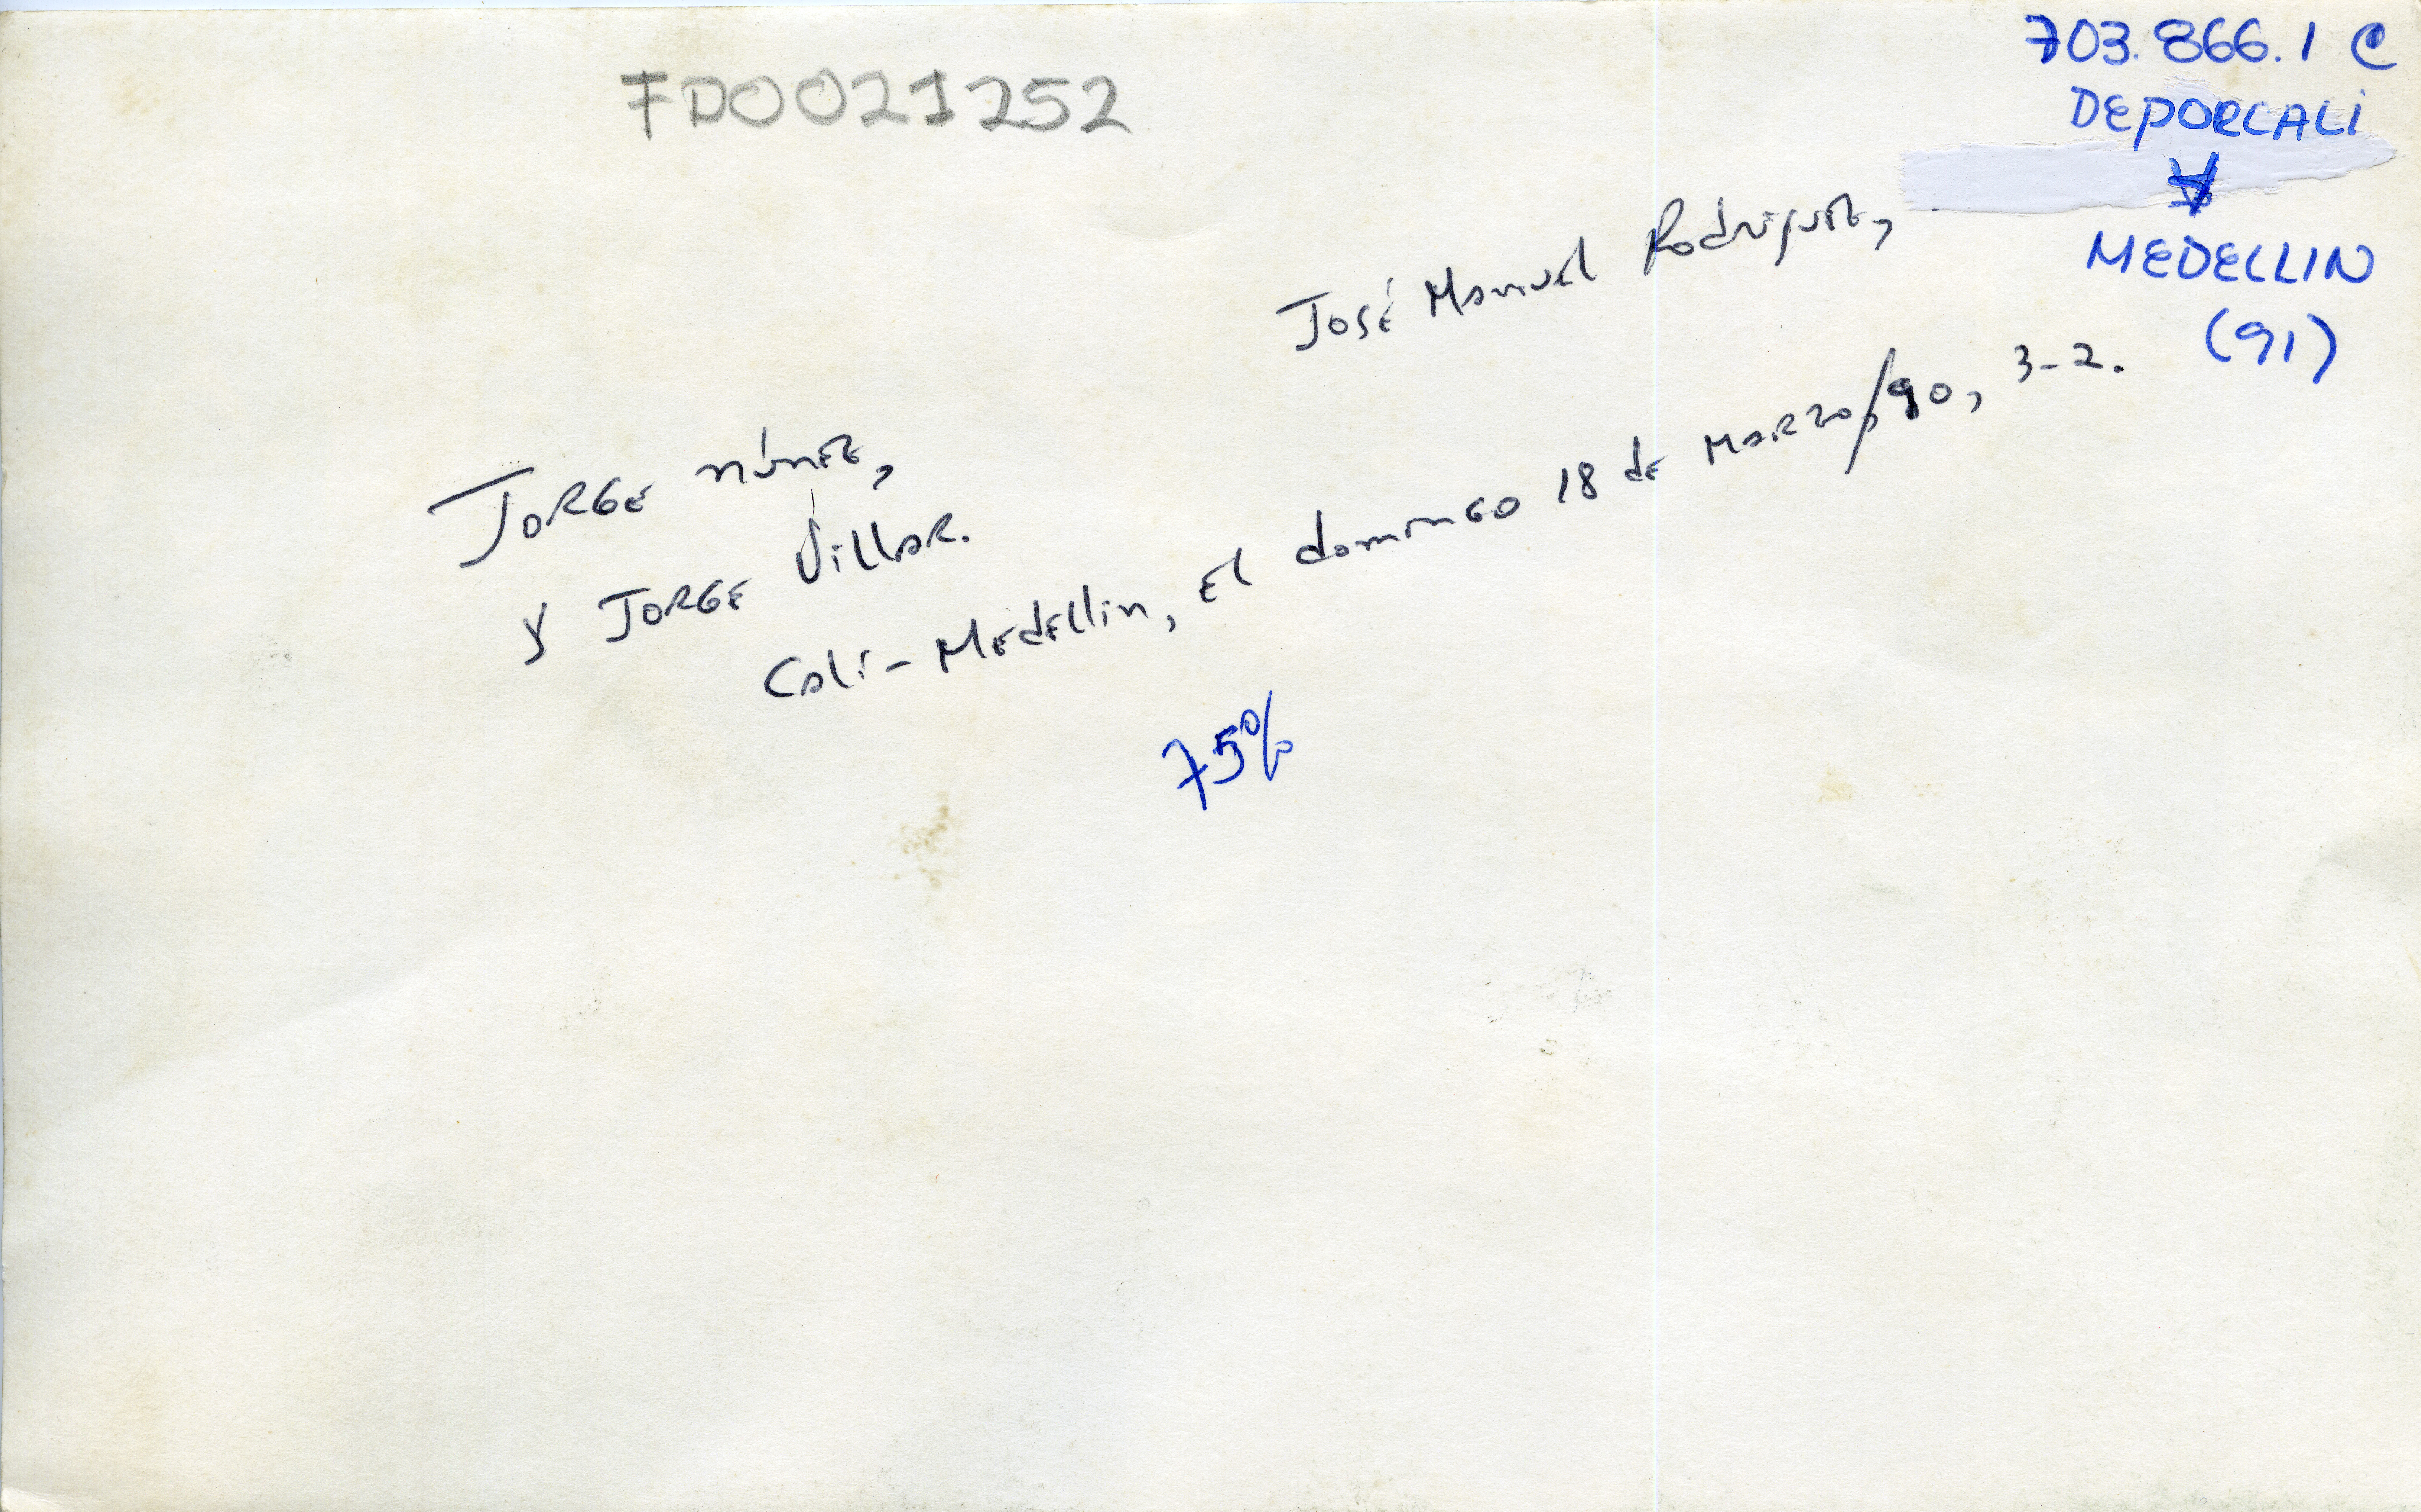 703.866.1 C
DEPORCALI
MEDELLIN
(91)
FD0021252
José Manuel Rodríguez,
Jorge núnez,
y Jorge Villar.
Cali-Medellin, el domingo 18 de Marzo/90, 3-2.
75%